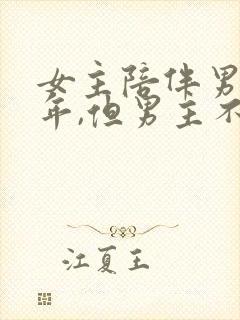 女主陪伴男
年,但男主不
江夏王